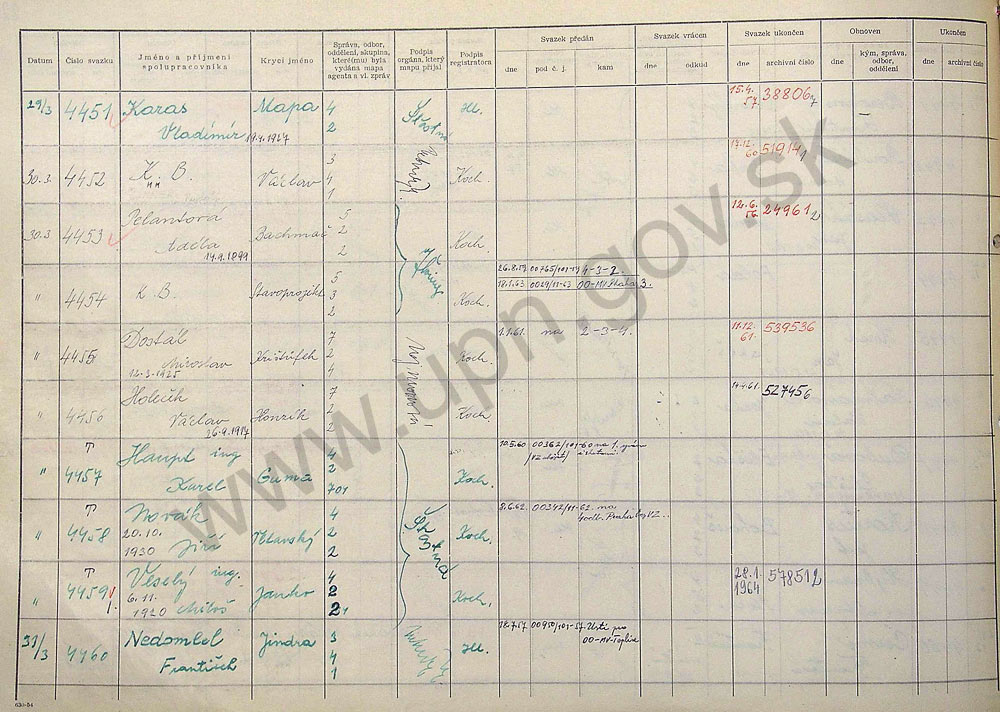 Datum
Číslo svazku
Jméno a příjmení spolupracovníka
Krycí jméno
Správa, odbor, oddělení, skupina, které(mu) byla vydána mapa agenta a vl. zpráv
Podpis orgána, který mapu přijal
Podpis registratora
Svazek předán
dne
pod č. j.
kam
Svazek vrácen
dne
odkud
Svazek ukončen
dne
archivní číslo
Obnoven
dne
kým, správa, odbor, oddělení
Ukončen
dne
archivní číslo
29/3 4451 Karas Mapa 4 Šťastná Hl. 15.4. 38806
Vladimír 19.4.1927 2 57. 7
3 17.12.
30.3. 4452 K. B. Václav 4 Koch. 60 51914 1
1
30.3 4453 Pelantová Bachmač 5 Koch. 12.6. 24961 2
Adéla 2 56.
14.9.1899 2
" 4454 K B. Stavoprojekt 5 Koch. 26.8.57 00765/101-57 4-3-2.
3 18.1.63 0029/11-63 00-MV Skala 3.
2
" 4455 Dostál Krištůfek 7 Koch. 1.1.61. na 2-3-4. 11.12. 539536
Miroslav 2 61.
12.3.1925 4
" 4456 Holečík Honzík 7 Koch. 527456
Václav 2
26.9.1917 2
T
" 4457 Haupt ing Guma 4 Koch. 10.5.60 00362/101-60 na 1. správu
Karel 2
701
T
" 4458 Novák Vltavský 4 Koch. 8.6.62. 00342/11-62. na
20.10. Jiří 2 Praha
1930 2
T
" 4459 Veselý ing. Janko 4 Koch. 28.1. 57851 2
6.11. Miloš 2 1964
1920 2 1
31/3 4460 Nedombel Jindra 3 Hl. 18.7.57 00950/101-57 Ústí pro
František 4 00-MV-Teplice
1
630-54
www.upn.gov.sk